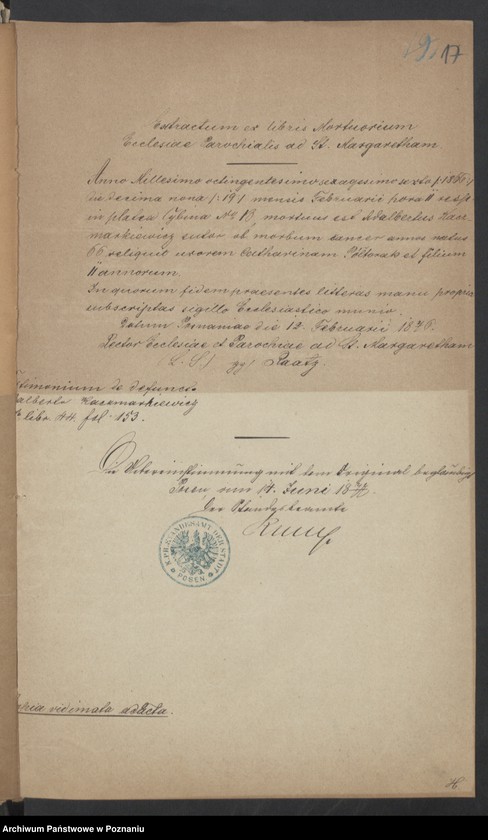 17
Extractum ex libris Mortuorum
Ecclesiae Parochialis ad St. Margaretham
Anno Millesimo octingentesimo sexagesimo sexto /:1866:/
die decima nona /:19:/ mensis Februarii hora 11 vesp
in platea Cybina No 13 mortuus est Adalbertus Kacz
markiewicz sutor ob morbum cancer annos natus
66 reliquit uxorem Catharinam et filium
11 annorum.
In quorum fidem praesentes litteras manu propria
subscriptas sigillo Ecclesiastico munio.
Datum Posnaniae die 12. Februarii 1876.
Rector Ecclesiae et Parochiae ad St. Margaretham
(L.S.) gez/ Raatz.
Testimonium de defuncto
Adalberto Kaczmarkiewicz
libr 44. fol 153.
Die Uebereinstimmung mit dem Original beglaubigt
Posen am 14. Juni 18
Der Standesbeamte
K. PR. STANDESAMT DER STADT
POSEN
Copia vidimata ad acta.
Archiwum Państwowe w Poznaniu